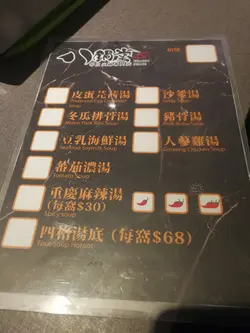 八鍋
皮蛋芫茜湯
Preserved Egg Coriander Soup
沙爹湯
Satay Soup
冬瓜排骨湯
Winter Pork Ribs Soup
豬骨湯
Pork Bone Soup
豆乳海鮮湯
Seafood Soymilk Soup
人參雞湯
Ginseng Chicken Soup
蕃茄濃湯
Tomato Soup
重慶麻辣湯
(每窩$30)
Spicy Soup
四格湯底 (每窩$68)
Four Soup Hotpot